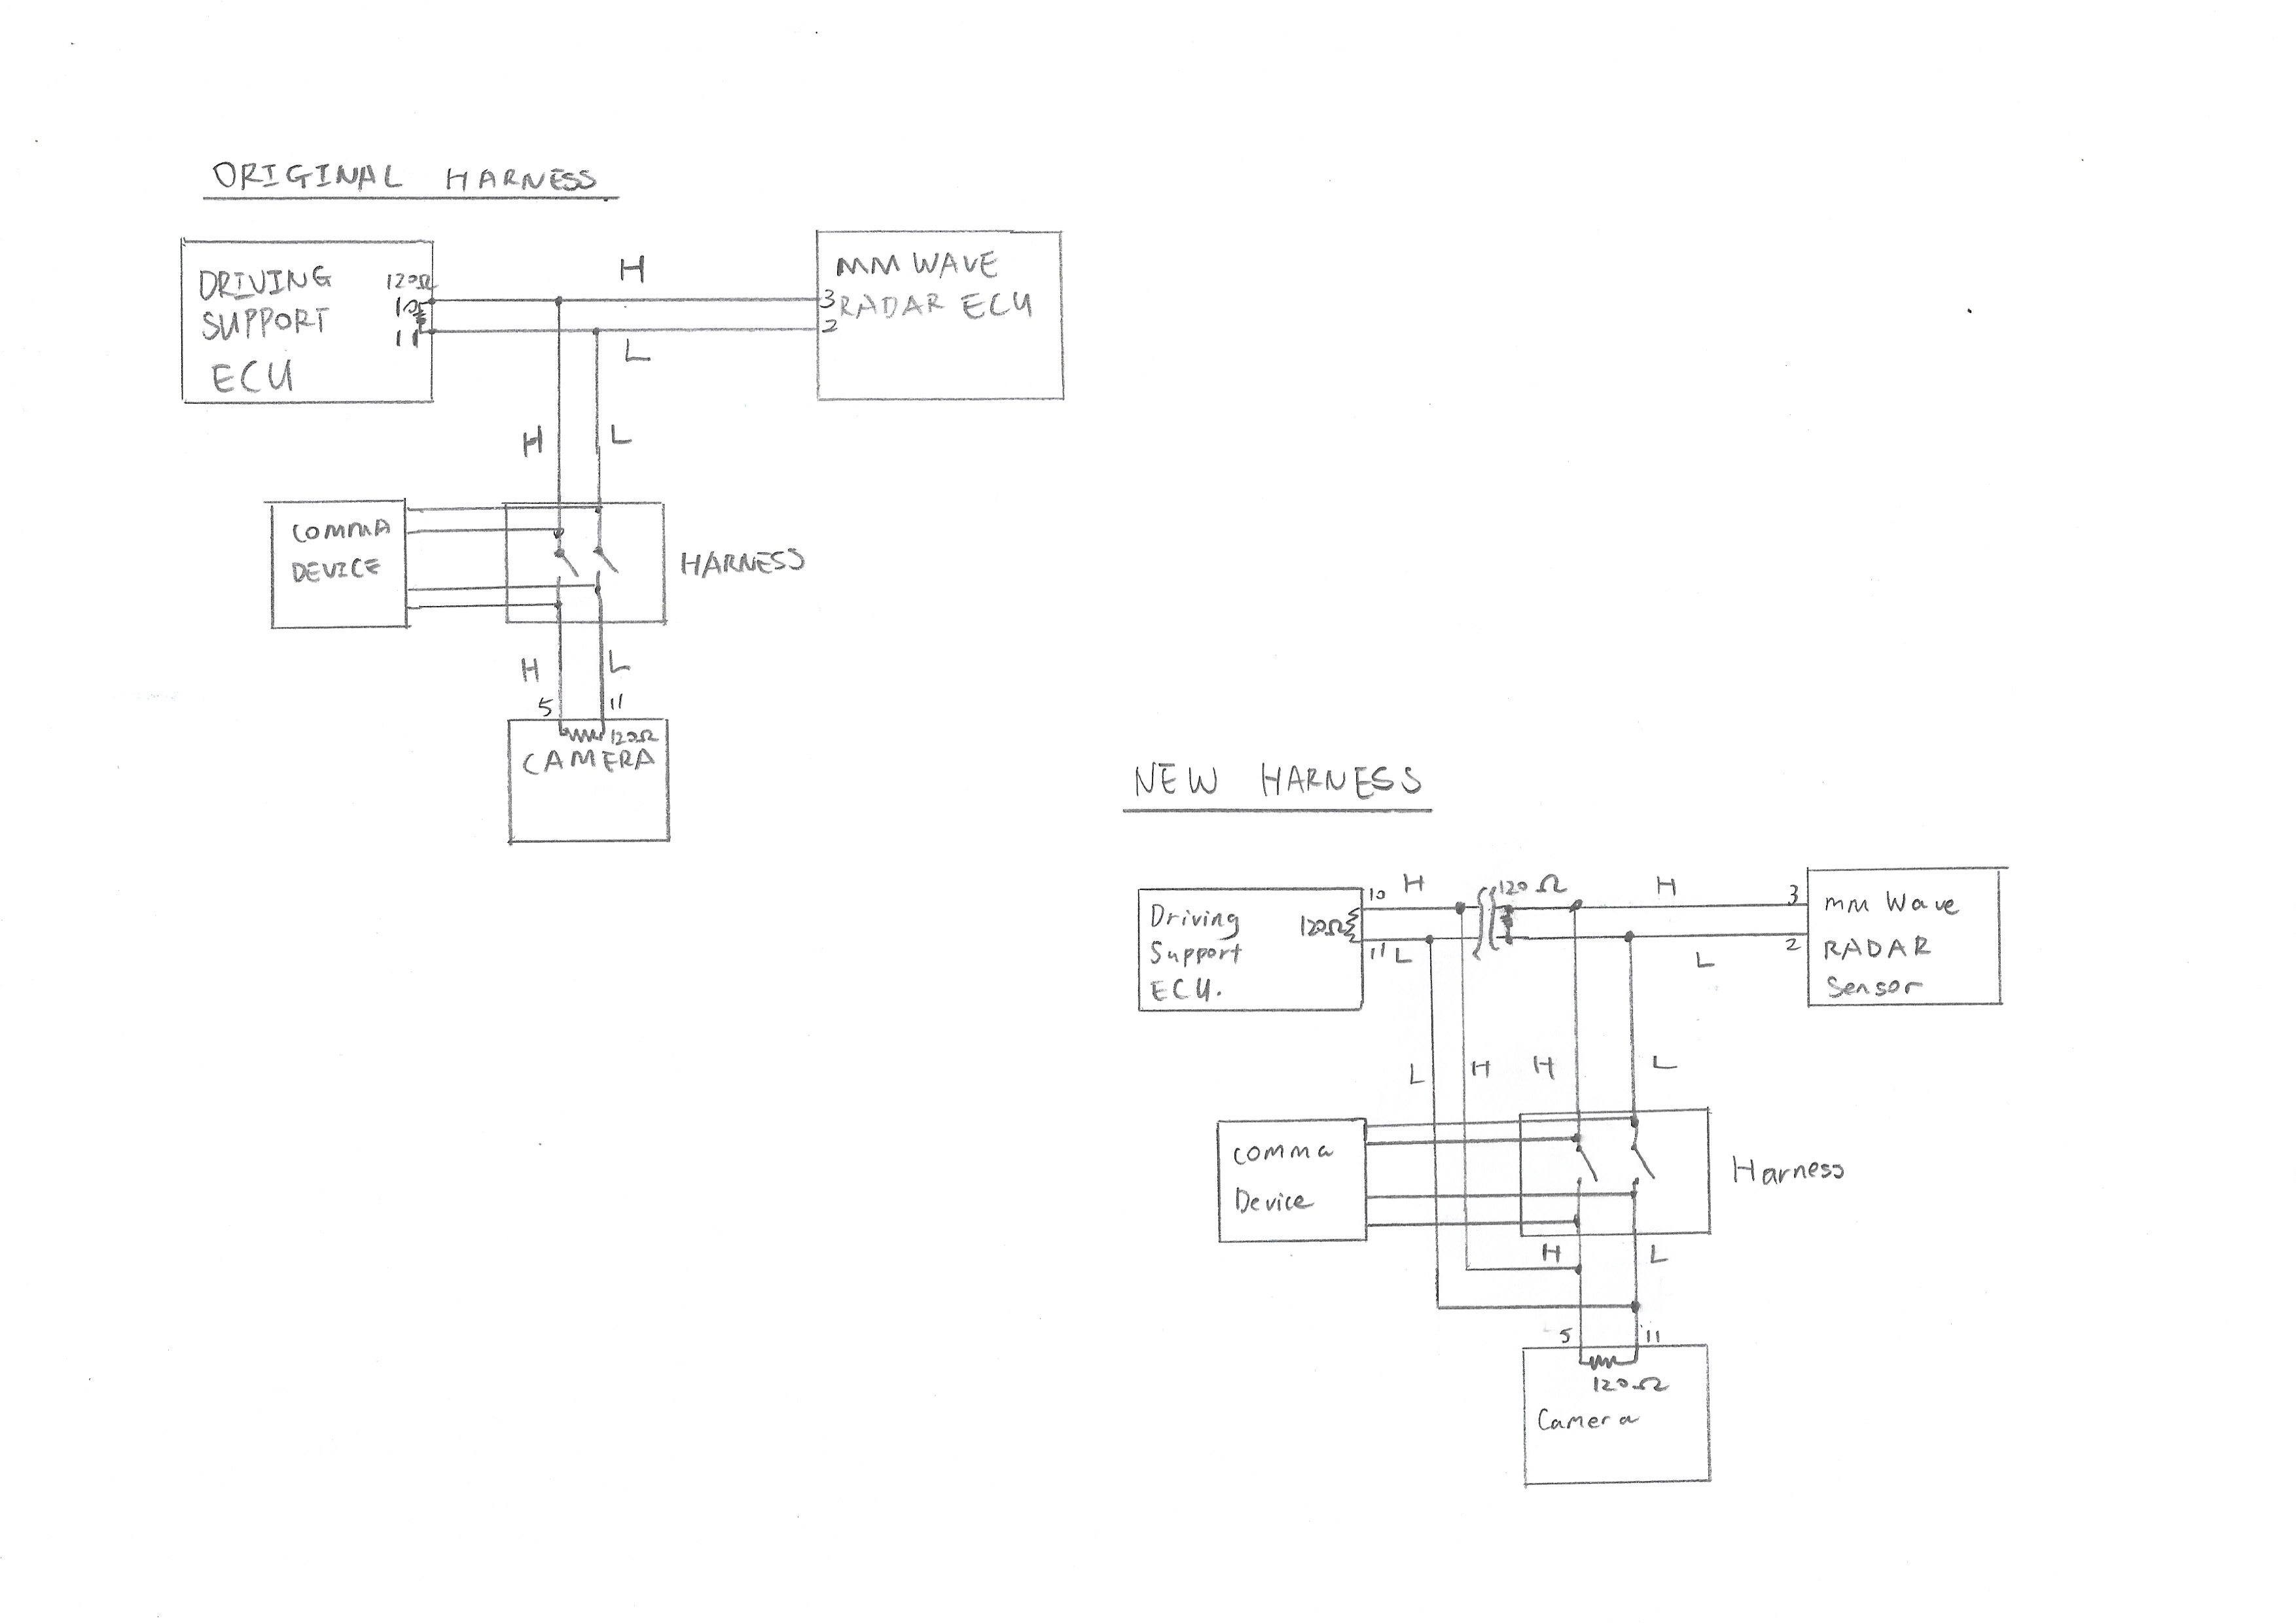 ORIGINAL HARNESS
DRIVING
SUPPORT
ECU
120Ω
10
11
H
L
MM WAVE
3 RADAR ECU
2
H
L
COMMA
DEVICE
HARNESS
H
L
5
11
120Ω
CAMERA
NEW HARNESS
Driving
Support
ECU.
120Ω
10
H
11
L
120Ω
H
L
3
2
mm Wave
RADAR
Sensor
L
H
H
L
Comma
Device
Harness
H
L
5
11
120Ω
Camera